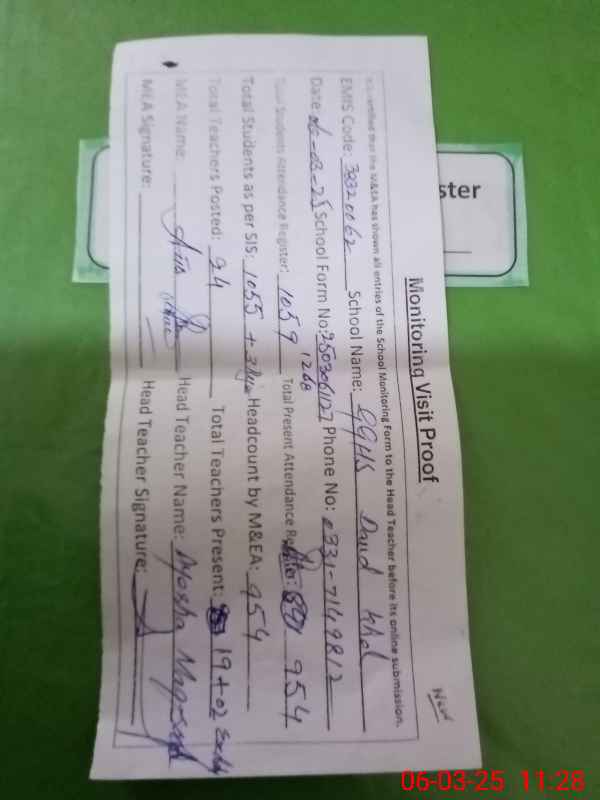 ster
New
Monitoring Visit Proof
It is certified that the M&EA has shown all entries of the School Monitoring Form to the Head Teacher before its online submission.
EMIS Code: 38320062 School Name: GGHS Daud Khel
Date: 06-03-25 School Form No: 2503061127 Phone No: 0331-7149812
1268
Total Students Attendance Register: 1059 Total Present Attendance Register: 954
Total Students as per SIS: 1055 + Headcount by M&EA: 954
Total Teachers Posted: 24 Total Teachers Present: 19+02
MEA Name: Head Teacher Name: Ayesha
MEA Signature: Head Teacher Signature:
06-03-25 11:28